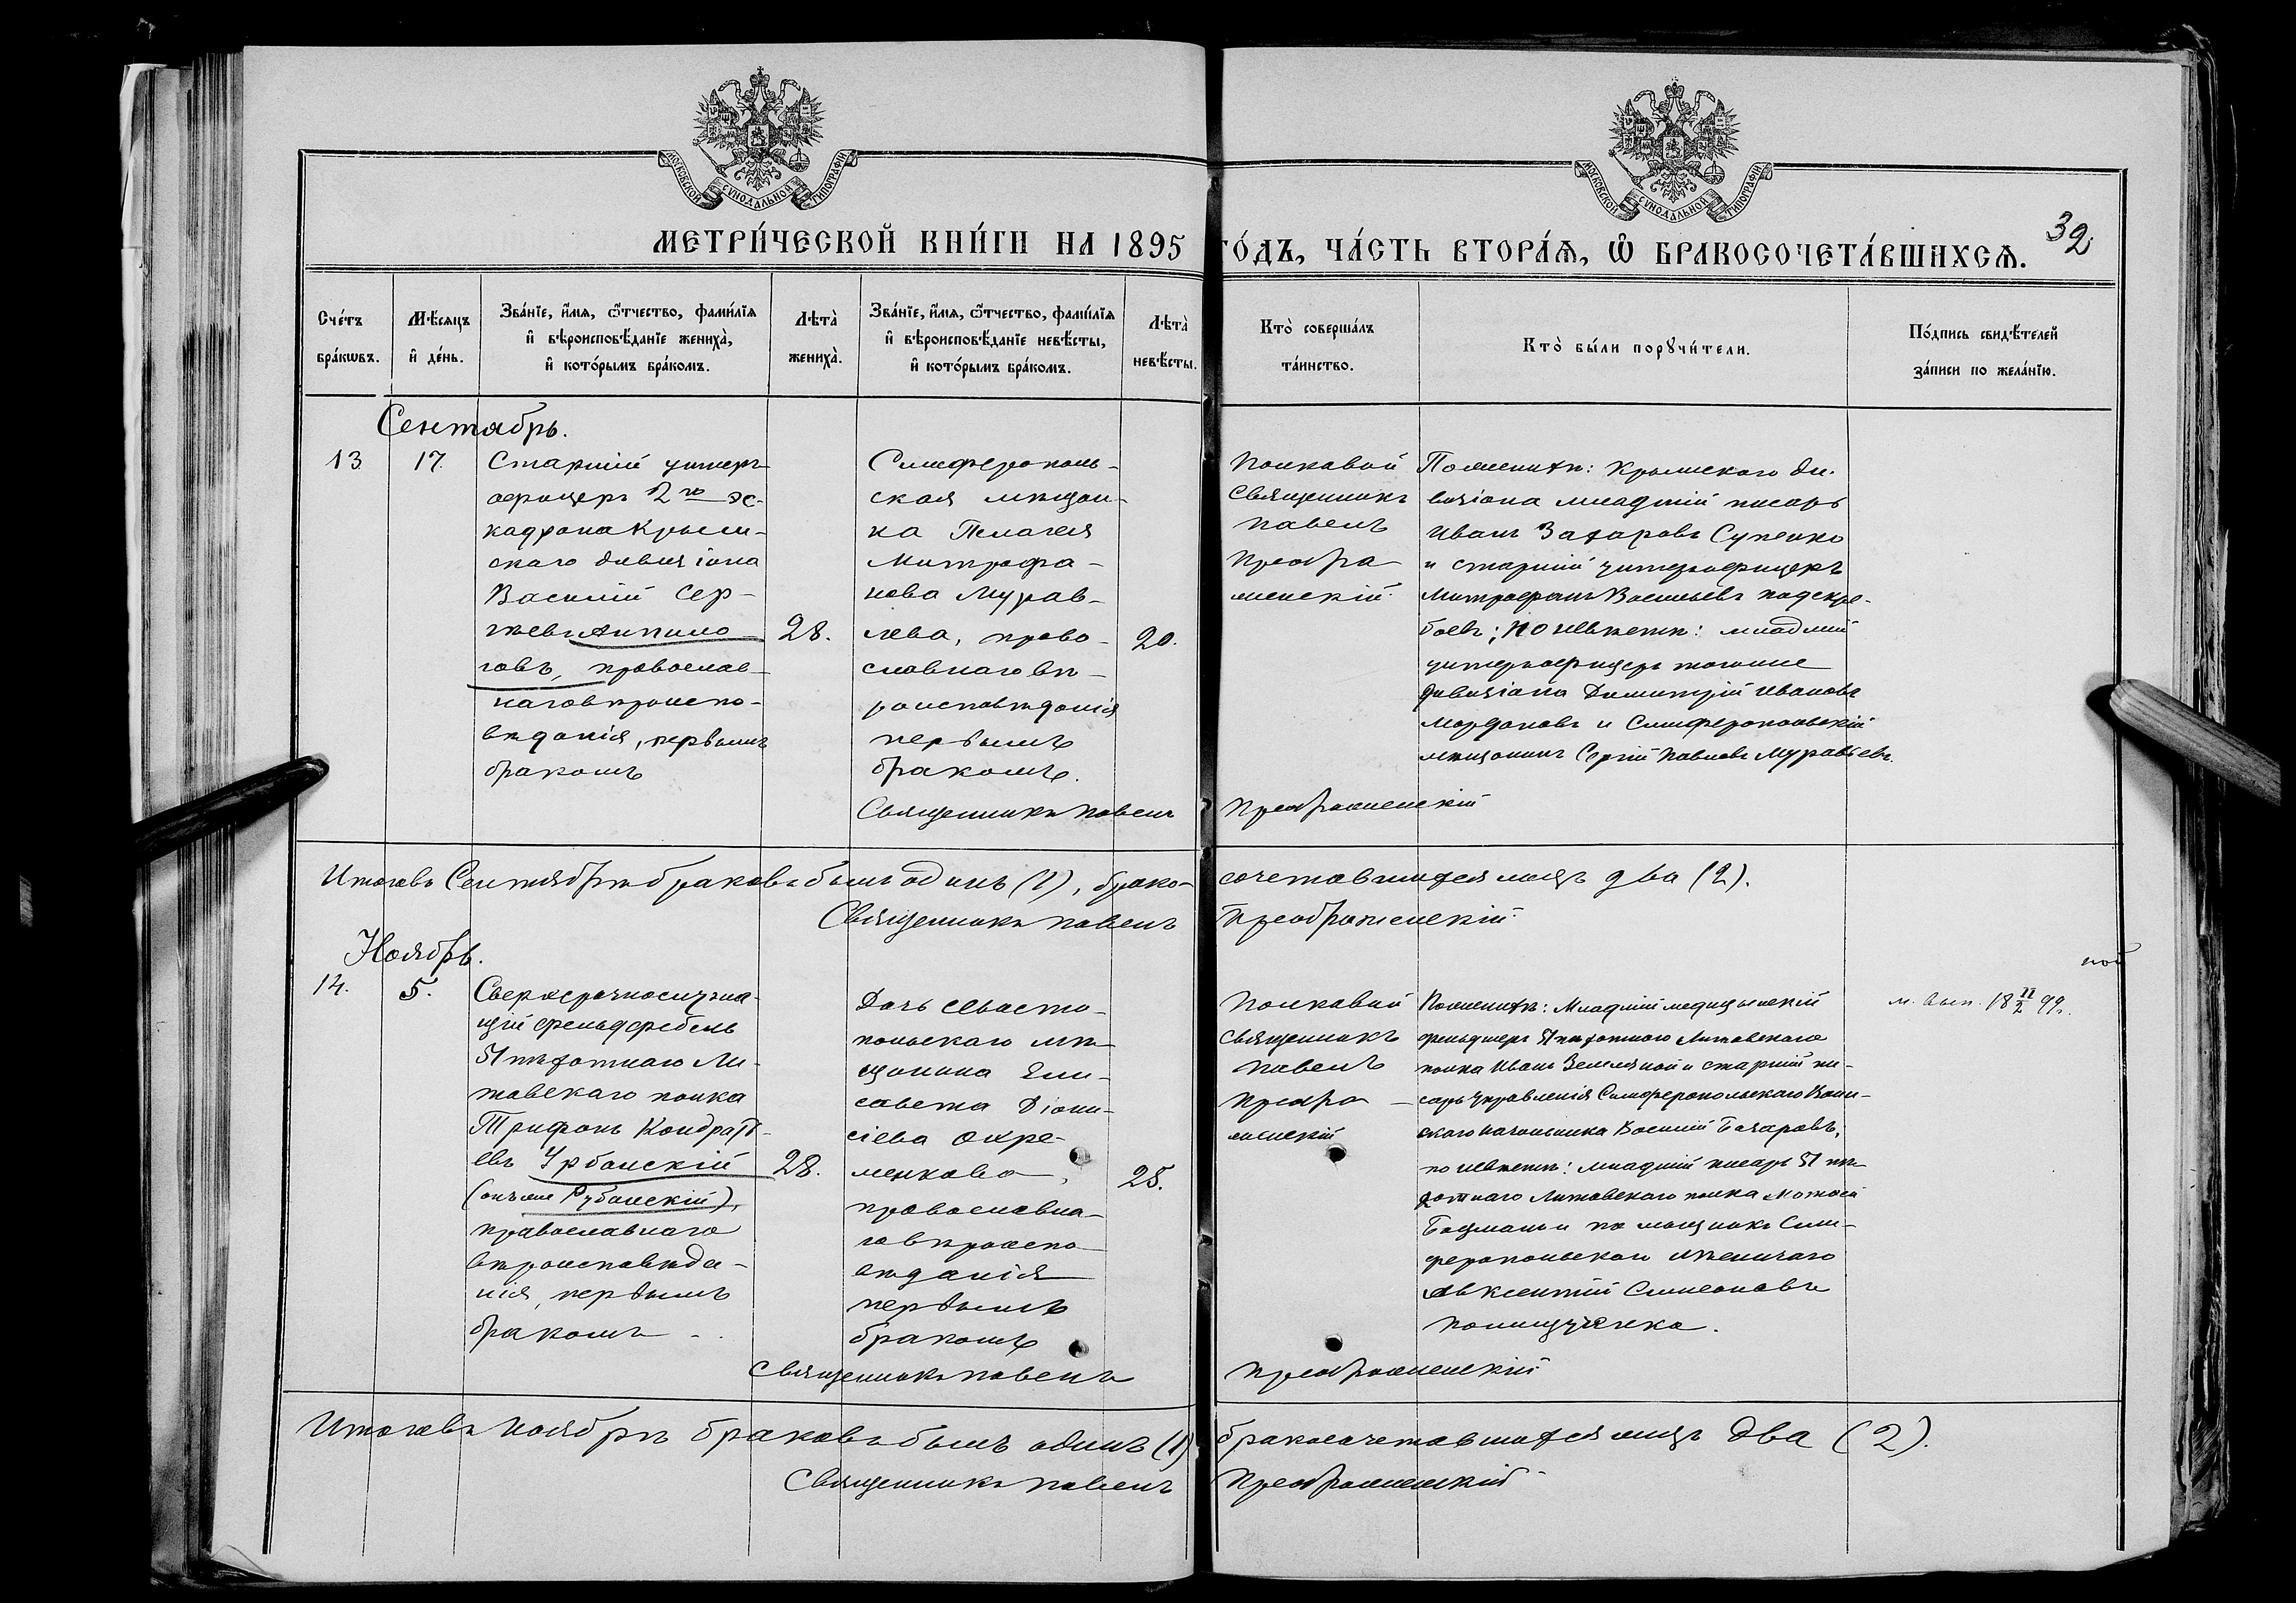 МОСКОВСКОЙ СѴНОДАЛЬНОЙ ТИПОГРАФІИ
МОСКОВСКОЙ СѴНОДАЛЬНОЙ ТИПОГРАФІИ
МЕТРИ́ЧЕСКОЙ КНИ́ГИ НА 1895 ГО́ДЪ, ЧА́СТЬ ВТОРА́Ѧ, Ѽ БРАКОСОЧЕТА́ВШИХСѦ.
32
Сче́тъ
бра́кѡвъ.
Мѣ́сяцъ
и҆ де́нь.
Зва́нїе, и҆́мѧ, ѻ҆́тчество, фамі́лїѧ
и҆ вѣроисповѣ́данїе жениха̀,
и҆ кото́рымъ бра́комъ.
Лѣта̀
жениха̀.
Зва́нїе, и҆́мѧ, ѻ҆́тчество, фамі́лїѧ
и҆ вѣроисповѣ́данїе невѣ́сты,
и҆ кото́рымъ бра́комъ.
Лѣта̀
невѣ́сты.
Кто̀ соверша́лъ
та́инство.
Кто̀ бы́ли порꙋчи́тели.
По́дпись свидѣ́телей
за́писи по жела́нїю.
Сентябрь.
13.
17.
Старшій унтеръ-
офицеръ 2го эс-
кадрона Крым-
скаго дивизіона
Василій Сер-
гѣевъ Анпило-
говъ, православ-
наго вѣроиспо-
вѣданія, первымъ
бракомъ
28.
Симферополь-
ская мѣщан-
ка Пелагея
Митрофа-
нова Мурав-
лева, право-
славнаго вѣ-
роисповѣданія
первымъ
бракомъ.
20.
Полковой
Священникъ
Павелъ
Преобра-
женскій.
По женихѣ: Крымскаго ди-
визіона младшій писарь
Иванъ Захаровъ Супенко
и старшій унтеръ офицеръ
Митрофанъ Васильевъ Подскре-
баевъ; по невѣстѣ: младшій
унтеръ офицеръ тогоже
дивизіона Димитрій Ивановъ
Мордановъ и Симферопольскій
мѣщанинъ Сергій Павловъ Муравьевъ.
Священникъ Павелъ Преображенскій
Итого въ Сентябрѣ браковъ былъ одинъ (1), брако-сочетавшихся лицъ два (2).
Священникъ Павелъ Преображенскій.
Ноябрь.
14.
5.
Сверхсрочнослужа-
щій фельдфебель
51 пѣхотнаго Ли-
товскаго полка
Трифонъ Кондрать-
евъ Урбанскій
(онъ же Рубанскій),
православнаго
вѣроисповѣда-
нія, первымъ
бракомъ
28.
Дочь Севасто-
польскаго мѣ-
щанина Ели-
савета Діони-
сіева Охре-
менкова,
православна-
го вѣроиспо-
вѣданія
первымъ
бракомъ
25.
Полковой
Священникъ
Павелъ
Преобра-
женскій
По женихѣ: Младшій медицинскій
фельдшеръ 51 пѣхотнаго Литовскаго
полка Иванъ Земляной и старшій пи-
сарь Управленія Симферопольскаго Воин-
скаго Начальника Василій Бочаровъ;
по невѣстѣ: младшій писарь 51 пѣ-
хотнаго Литовскаго полка Матвей
Боцманъ и помощникъ Сим-
феропольскаго
Авксентій Симеоновъ
Полищученко.
м. вып. 18 11/2 99.
Священникъ Павелъ Преображенскій
Итого въ Ноябрѣ браковъ былъ одинъ (1) бракосочетавшихся лицъ два (2).
Священникъ Павелъ Преображенскій